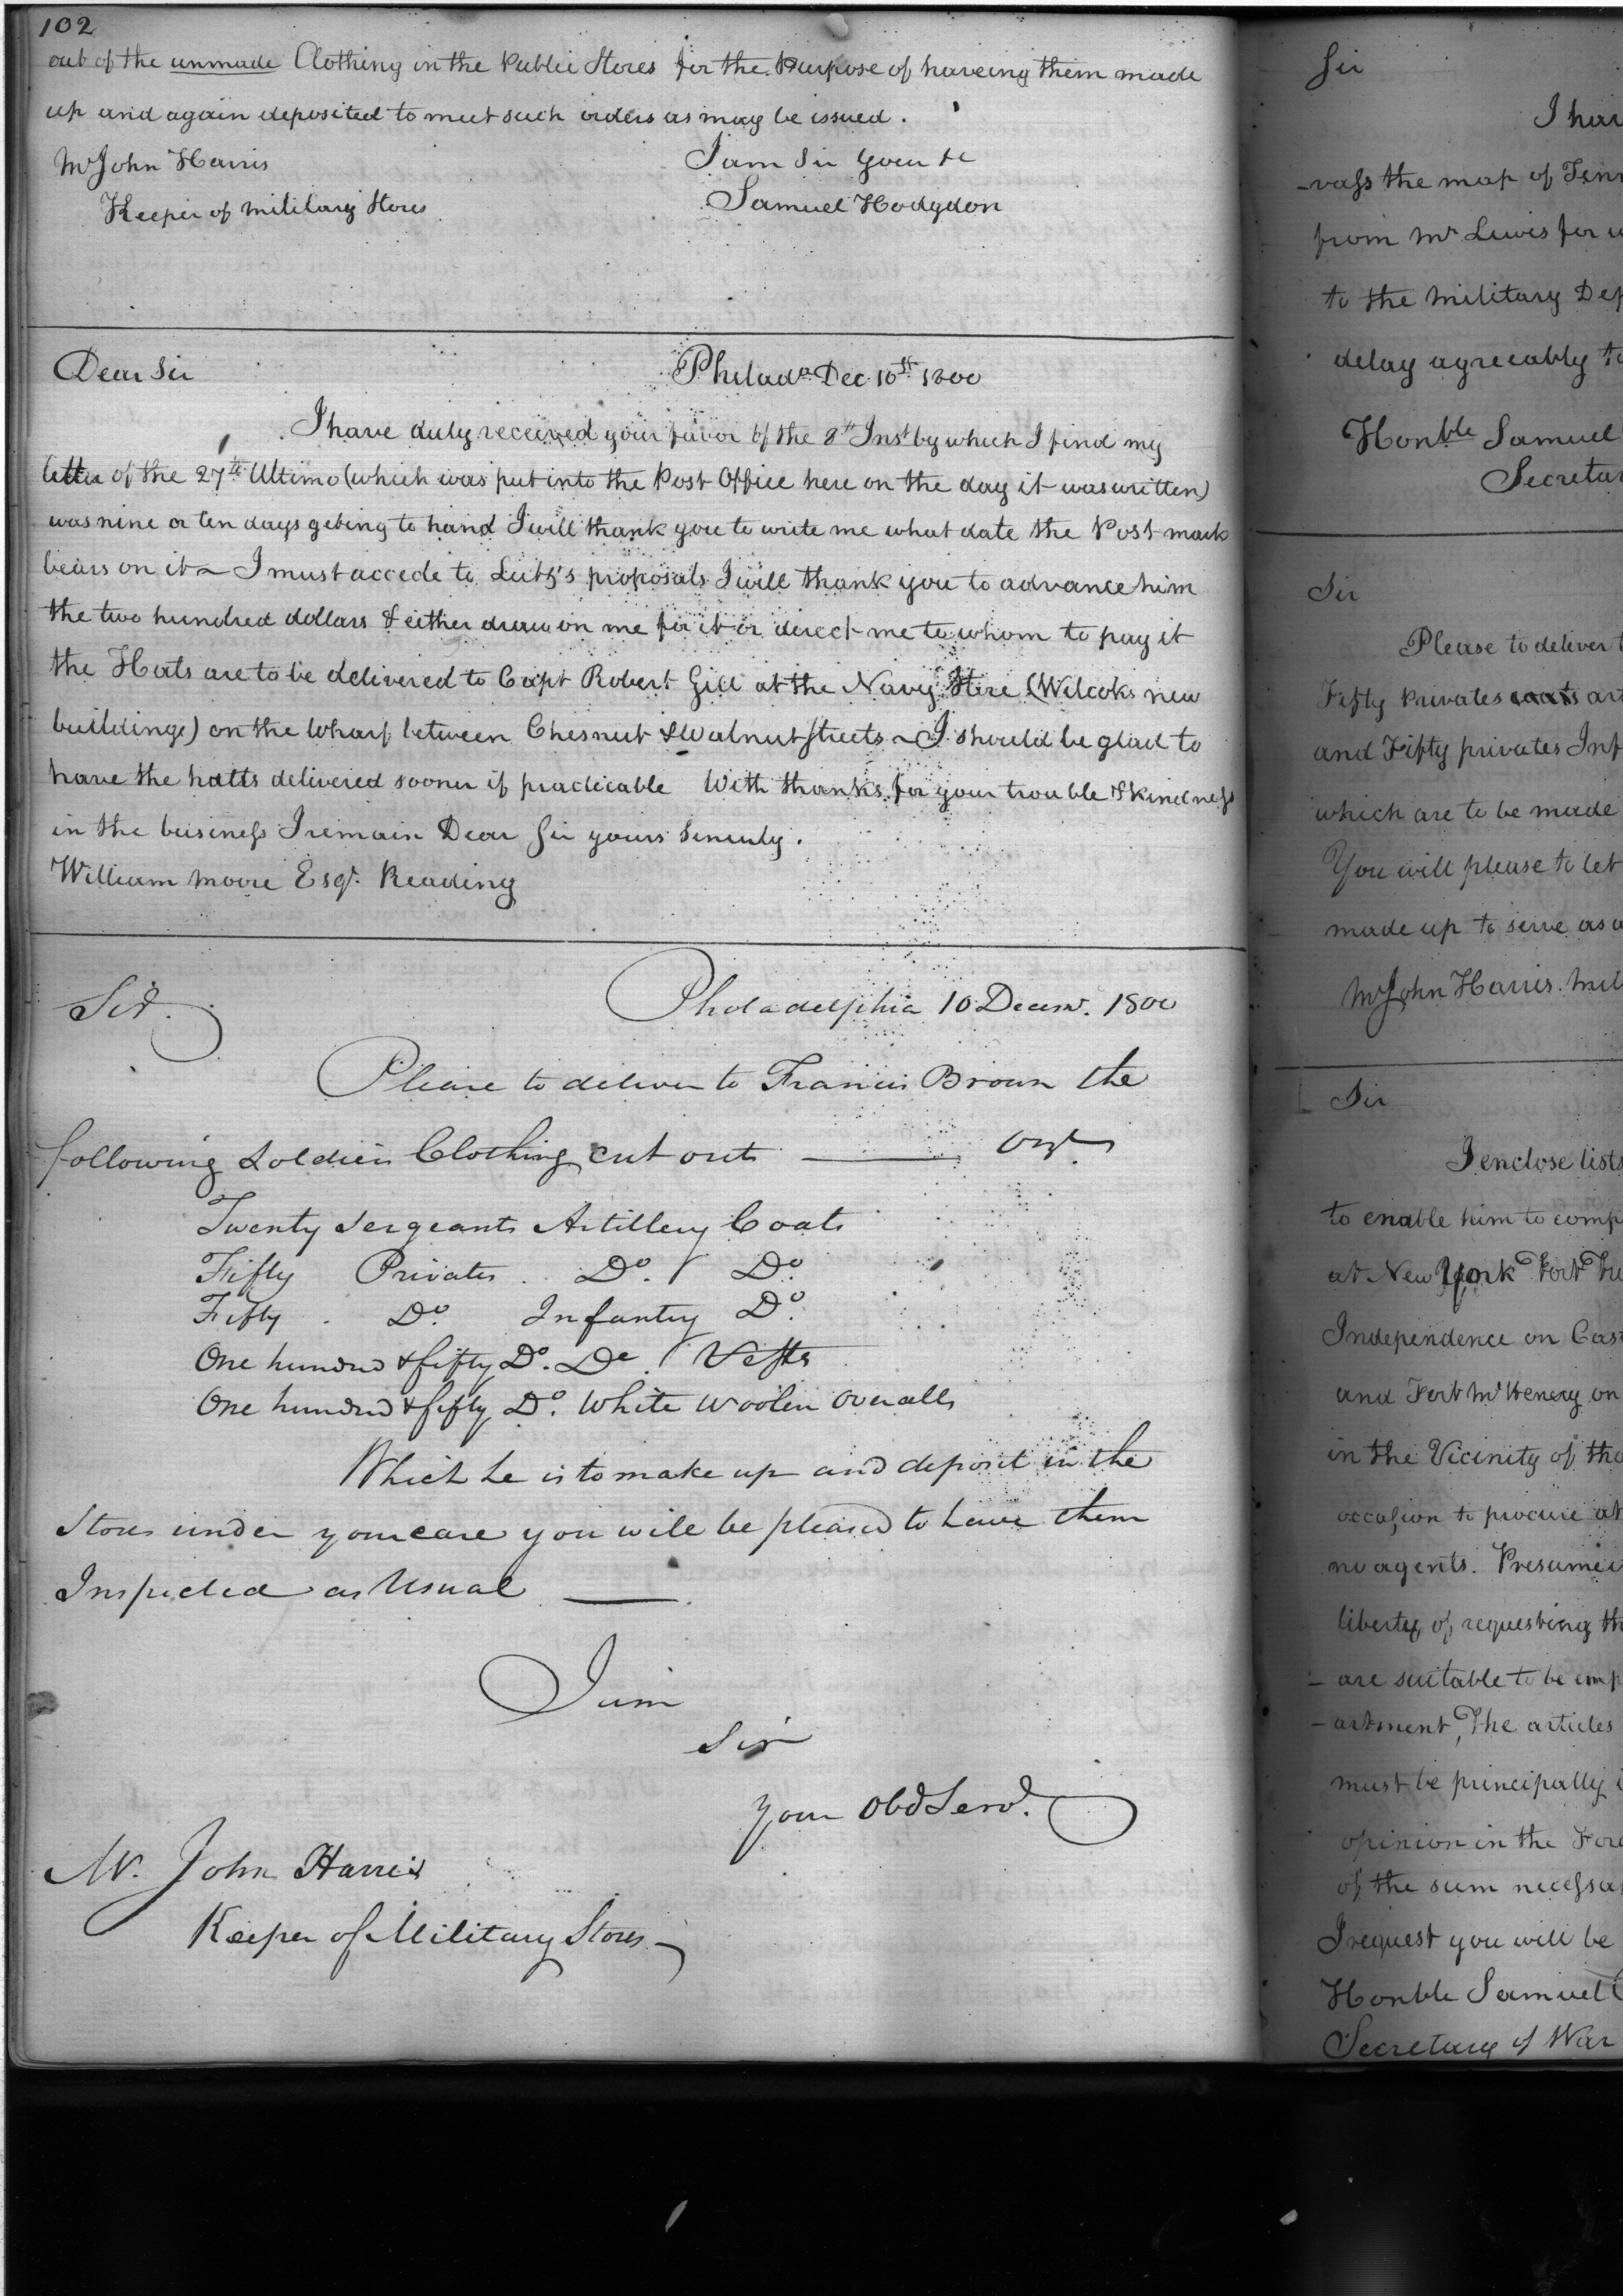 102
out of the unmade Clothing in the Public Stores for the Purpose of haveing them made
up and again deposited to meet such orders as may be issued.
Mr John Harris
I am Sir your &c
Keeper of military Stores
Samuel Hodgdon
Dear Sir
Philada Dec 10th 1800
I have duly received your favor of the 8th Inst by which I find my
letter of the 27th Ultimo (which was put into the Post Office here on the day it was written)
was nine or ten days geting to hand I will thank you to write me what date the Post mark
bears on it ~ I must accede to Lutz's proposals I will thank you to advance him
the two hundred dollars & either draw on me for it or direct me to whom to pay it
the Hats are to be delivered to Capt Robert Gill at the Navy Store (Wilcoks new
buildings) on the Wharf between Chesnut & Walnut Streets ~ I should be glad to
have the hatts delivered sooner if practicable With thanks for your trouble & kindness
in the business I remain Dear Sir yours Sincerely.
William Moore Esqr. Reading
Sir.
Philadelphia 10 Decemr. 1800
Please to deliver to Francis Brown the
following Soldiers Clothing cut out — Vizt
Twenty Sergeants Artillery Coats
Fifty Privates Do. Do.
Fifty Do. Infantry Do.
One hundred & fifty Do. Do. Vests
One hundred & fifty Do. White Woolen Overalls
Which he is to make up and deposit in the
Stores under your care you will be pleased to have them
Inspected as Usual —
I am
Sir
Your Obd Servt.
Mr. John Harris
Keeper of Military Stores
Sir
I hav
-vass the map of Tenn
from Mr Lewis for
to the Military Dep
delay agreeably to
Honble Samuel
Secretar
Sir
Please to deliver
Fifty Privates coats art
and Fifty privates Inf
which are to be made
You will please to let
made up to serve as a
Mr John Harris. mil
Sir
I enclose lists
to enable him to comp
at New York Fort
Independence on Cast
and Fort McHenery on
in the Vicinity of tho
occasion to procure at
no agents. Presumei
liberty of requesting th
are suitable to be emp
-artment, The articles
must be principally
opinion in the For
of the sum necessar
I request you will be
Honble Samuel
Secretary of War